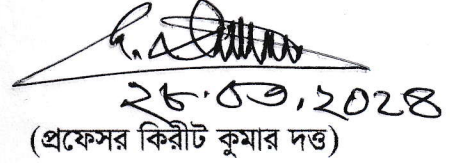 ২৮.০৩.২০২৪
(প্রফেসর কিরীট কুমার দত্ত)